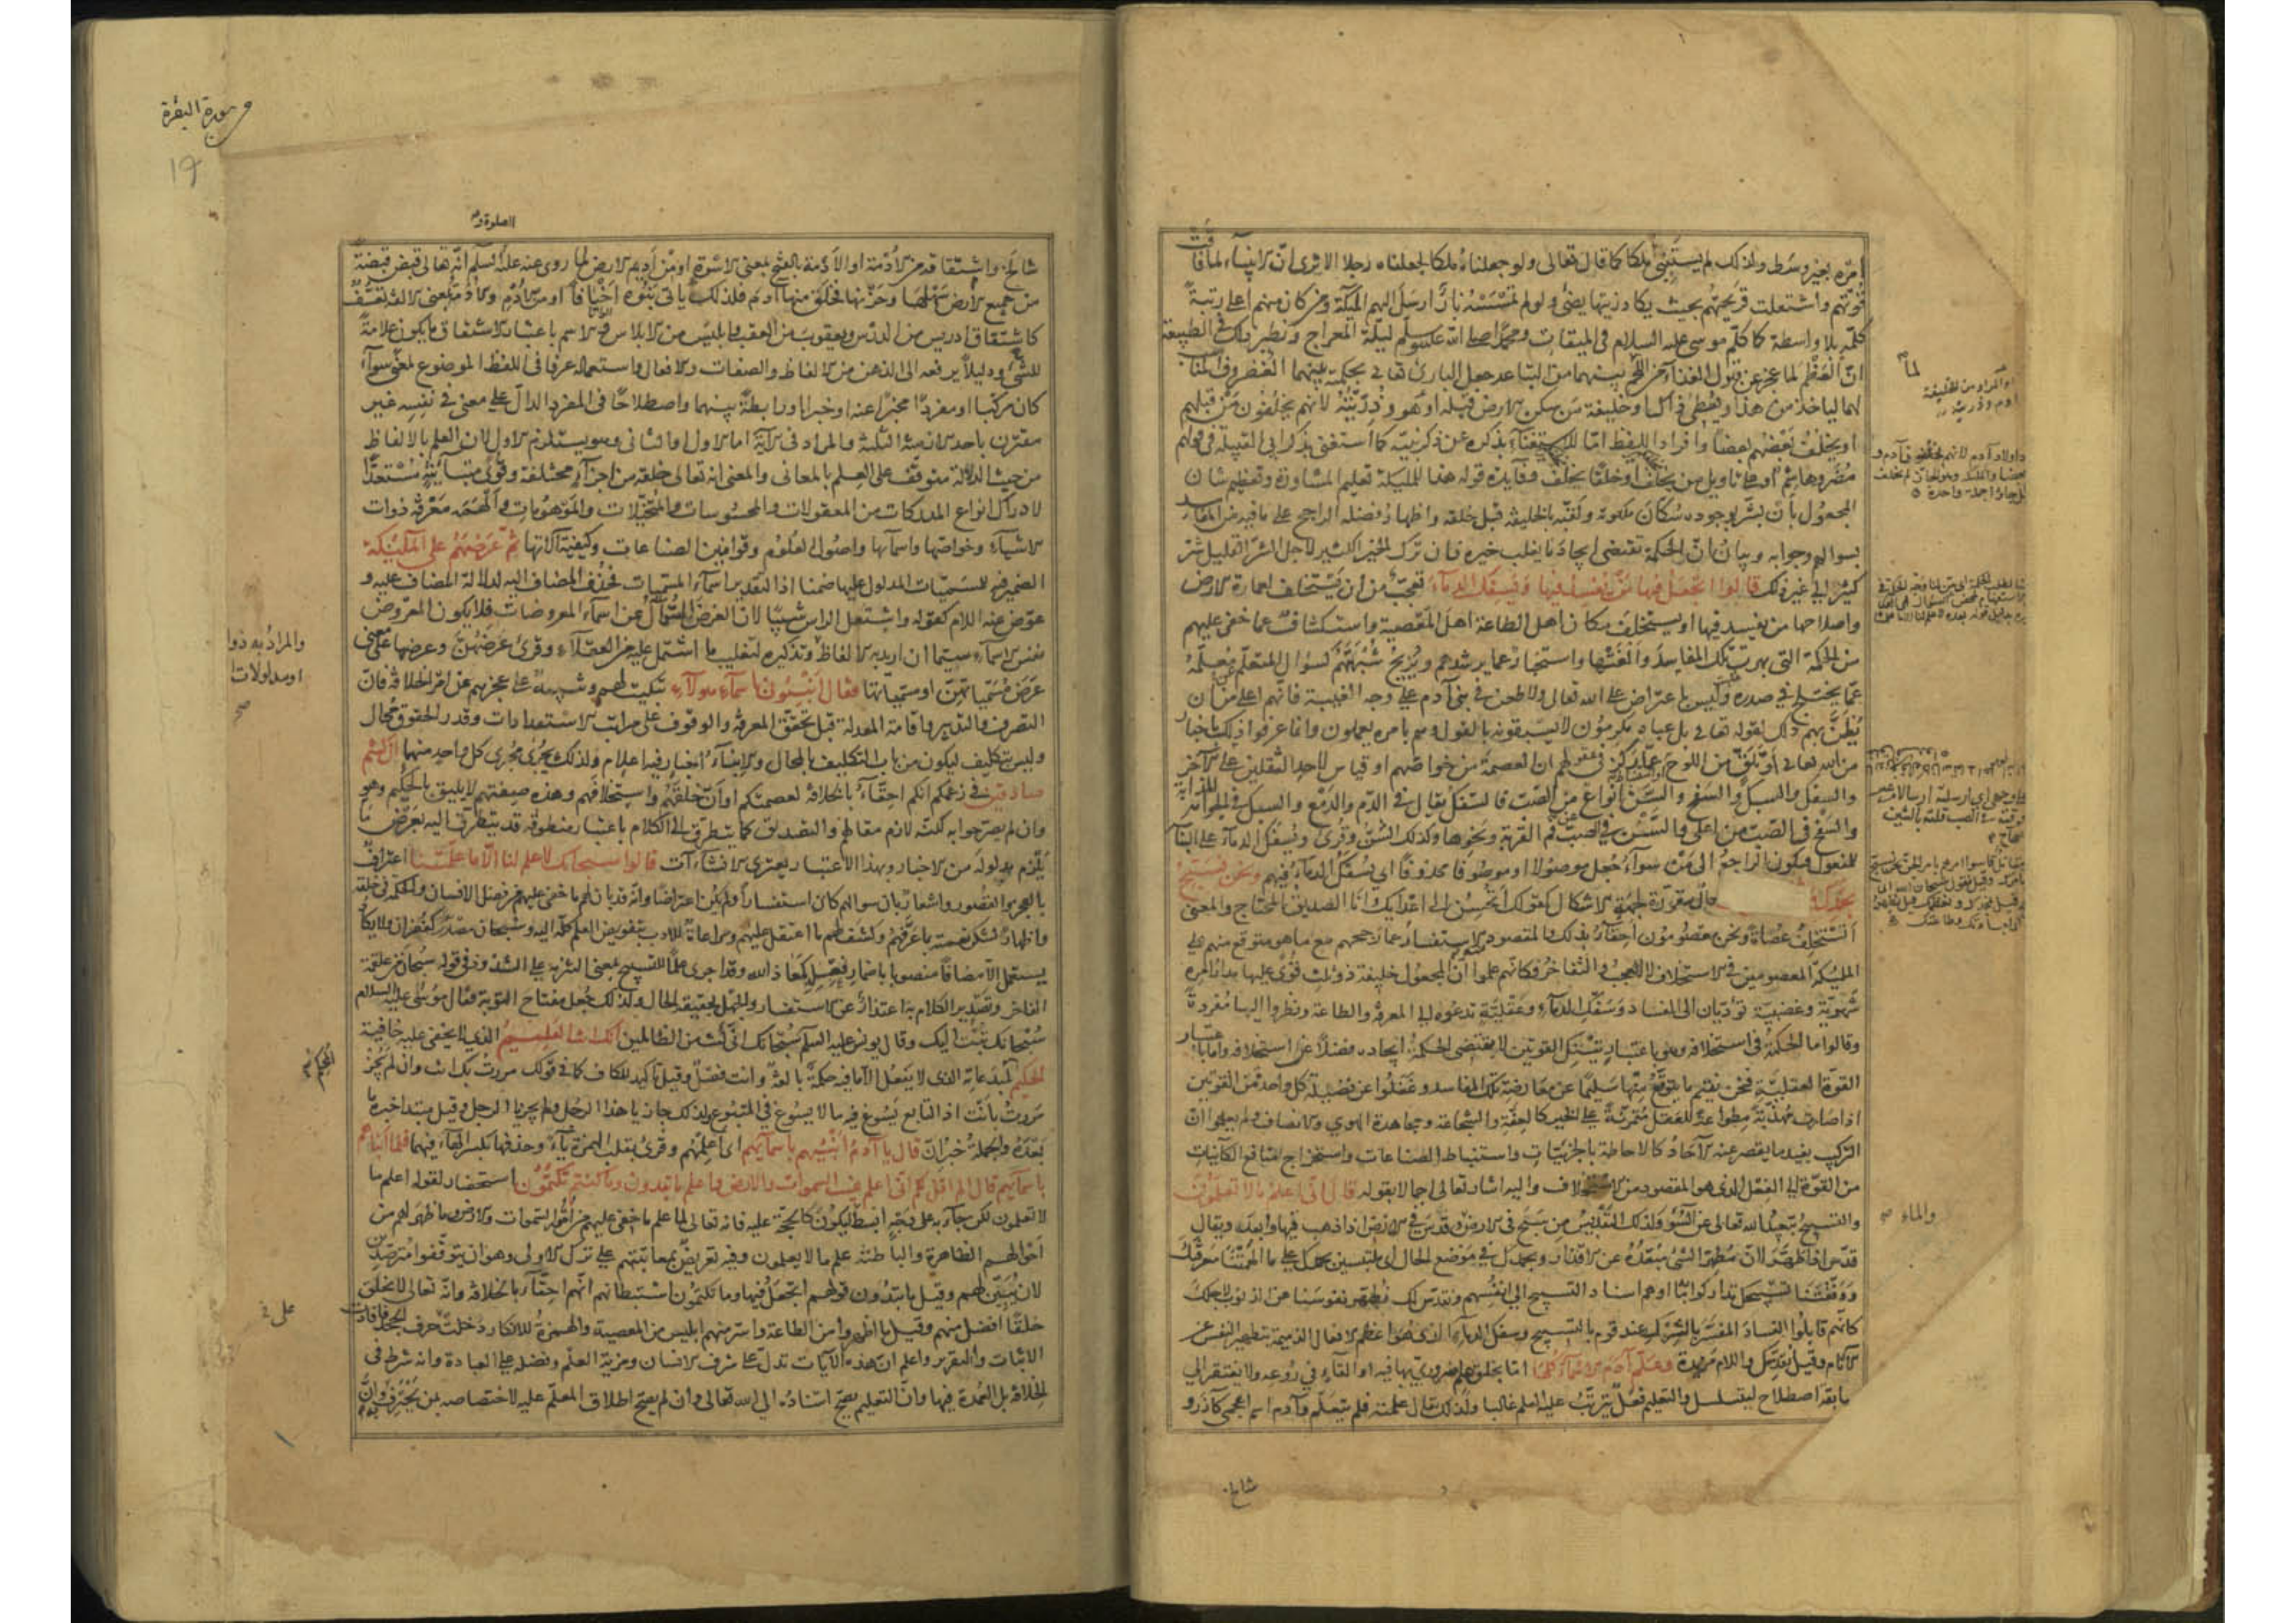 امره بغير وسط ولذلك لم يستنبئ ملكا كما قال تعالى ولو جعلناه ملكا لجعلناه رجلا الا ترى ان الانبياء لما فاقت
قوتهم واشتعلت قريحتهم بحيث يكاد زيتها يضئ ولو لم تمسسه نار ارسل اليهم الملائكة ومن كان منهم اعلى رتبة
كلمه بلا واسطة كما كلم موسى عليه السلام في الميقات ومحمدا صلى الله عليه وسلم ليلة المعراج ونظير ذلك في الطبيعة
ان العظم لما عجز عن قبول الغذاء من اللحم بينهما من التباعد جعل البارئ تعالى بحكمته بينهما الغضروف المناسب
لهما ليأخذ من هذا ويعطي ذاك او خليفة من سكن الارض قبله او هو وذريته لانهم يخلفون من قبلهم
او يخلف بعضهم بعضا وافراد اللفظ اما للاستغناء بذكره عن ذكر بنيه كما استغنى بذكر ابي القبيلة في قولهم
مضر وهاشم او على تأويل من يخلف او خلقا يخلف وفايدة قوله هذا للملئكة تعليم المشاورة وتعظيم شان
المجعول بان بشر بوجوده سكان ملكوته ولقبه بالخليفة قبل خلقه واظهار فضله الراجح على ما فيه من المفاسد
بسوالهم وجوابه وبيان ان الحكمة تقتضي ايجاد ما يغلب خيره فان ترك الخير الكثير لاجل الشر القليل شر
كثير الى غير ذلك قالوا اتجعل فيها من يفسد فيها ويسفك الدماء تعجب من ان يستخلف لعمارة الارض
واصلاحها من يفسد فيها او يستخلف مكان اهل الطاعة اهل المعصية واستكشاف عما خفي عليهم
من الحكمة التي بهرت تلك المفاسد والغتها واستخبار عما يرشدهم ويزيح شبهتهم كسؤال المتعلم معلمه
عما يختلج في صدره وليس باعتراض على الله تعالى ولا طعن في بني آدم على وجه الغيبة فانهم اعلى من ان
يظن بهم ذلك لقوله تعالى بل عباد مكرمون لا يسبقونه بالقول وهم بامره يعملون وانما عرفوا ذلك باخبار
من الله تعالى او تلق من اللوح او عما ركز في عقولهم ان العصمة من خواصهم او قياس لاحد الثقلين على الآخر
والسفك والسبك والسفح والشن انواع من الصب فالسفك يقال في الدم والدمع والسبك في الجواهر المذابة
والسفح في الصب من اعلى والشن في الصب عن فم القربة ونحوها وكذلك السن وقرئ ويسفك الدماء على البناء
للمفعول فيكون الراجع الى من سواء جعل موصولا او موصوفا محذوفا اي يسفك الدماء فيهم ونحن نسبح
بحمدك حال مقررة لجهة الاشكال كقولك اتحسن الى اعدائك وانا الصديق المحتاج والمعنى
اتستخلف عصاة ونحن معصومون احقاء بذلك والمقصود منه الاستفسار عما رجحهم مع ما هو متوقع منهم على
الملئكة المعصومين في الاستخلاف لا العجب والتفاخر فكانهم علموا ان المجعول خليفة ذو ثلث قوى عليها مدار امره
شهوية وغضبية تؤديان الى الفساد وسفك الدماء وعقلية تدعوه الى المعرفة والطاعة ونظروا اليها مفردة
وقالوا ما الحكمة في استخلافه وهو باعتبار تينك القوتين لا يقتضي الحكمة ايجاده فضلا عن استخلافه واما باعتبار
القوة العقلية فنحن نقيم ما يتوقع منها سليما عن معارضة تلك المفاسد وغفلوا عن فضيلة كل واحدة من القوتين
اذا صارت مهذبة مطواعة للعقل متمرنة على الخير كالعفة والشجاعة ومجاهدة الهوى والانصاف ولم يعلموا ان
التركيب يفيد ما يقصر عنه الآحاد كالاحاطة بالجزئيات واستنباط الصناعات واستخراج منافع الكاينات
من القوة الى الفعل الذي هو المقصود من الاستخلاف واليه اشار تعالى اجمالا بقوله قال اني اعلم ما لا تعلمون
والتسبيح تبعيد الله تعالى عن السوء وكذلك التقديس من سبح في الارض وقدس في الارض اذا ذهب فيها وابعد ويقال
قدس اذا طهر لان مطهر الشئ مبعده عن الاقذار وبحمدك في موضع الحال اي ملتبسين بحمدك على ما الهمتنا معرفتك
ووفقتنا لتسبيحك تداركوا به ما اوهم اسناد التسبيح الى انفسهم ونقدس لك نطهر نفوسنا عن الذنوب لاجلك
كانهم قابلوا الفساد المفسر بالشرك عند قوم بالتسبيح وسفك الدماء الذي هو اعظم الافعال الذميمة بتطهير النفس عن
الآثام وقيل نقدسك واللام مزيدة وعلم آدم الاسماء كلها اما بخلق علم ضروري بها فيه او القاء في روعه ولا يفتقر الى
سابقة اصطلاح ليتسلسل والتعليم فعل يترتب عليه العلم غالبا ولذلك يقال علمته فلم يتعلم وآدم اسم اعجمي كآزر و
شالخ
لما
والمراد من الخليفة
آدم وذريته
والماء
سورة البقرة
١٩
الصلوة و
شالخ واشتقاقه من الادمة او الادمة بالفتح بمعنى الاسوة او من اديم الارض لما روي عنه عليه السلم انه تعالى قبض قبضة
من جميع الارض سهلها وحزنها فخلق منها آدم فلذلك يأتي بنوه اخيافا او من الادم والادمة بمعنى الالفة تعسف
كاشتقاق ادريس من الدرس ويعقوب من العقب وابليس من الابلاس والاسم باعتبار الاشتقاق ما يكون علامة
للشئ ودليلا يرفعه الى الذهن من الالفاظ والصفات والافعال واستعماله عرفا في اللفظ الموضوع لمعنى سواء
كان مركبا او مفردا مخبرا عنه او خبرا او رابطة بينهما واصطلاحا في المفرد الدال على معنى في نفسه غير
مقترن باحد الازمنة الثلثة والمراد في الآية اما الاول او الثاني وهو يستلزم الاول لان العلم بالالفاظ
من حيث الدلالة متوقف على العلم بالمعاني والمعنى انه تعالى خلقه من اجزاء مختلفة وقوى متباينة مستعدا
لادراك انواع المدركات من المعقولات والمحسوسات والمتخيلات والموهومات والهمه معرفة ذوات
الاشياء وخواصها واسمائها واصول العلوم وقوانين الصناعات وكيفية آلاتها ثم عرضهم على الملئكة
الضمير فيه للمسميات المدلول عليها ضمنا اذ التقدير اسماء المسميات فحذف المضاف اليه لدلالة المضاف عليه و
عوض عنه اللام كقوله واشتعل الراس شيبا لان العرض للسؤال عن اسماء المعروضات فلا يكون المعروض
نفس الاسماء سيما ان اريد به الالفاظ وتذكيره لتغليب ما اشتمل عليه من العقلاء وقرئ عرضهن وعرضها على معنى
عرض مسمياتهن او مسمياتها فقال انبئوني باسماء هولاء تبكيت لهم وتنبيه على عجزهم عن امر الخلافة فان
التصرف والتدبير واقامة المعدلة قبل تحقق المعرفة والوقوف على مراتب الاستعدادات وقدر الحقوق محال
وليس بتكليف ليكون من باب التكليف بالمحال والانباء اخبار فيه اعلام ولذلك يجرى مجرى كل واحد منهما ان كنتم
صادقين في زعمكم انكم احقاء بالخلافة لعصمتكم او ان خلقهم واستخلافهم وهذه صفتهم لا يليق بالحكيم وهو
وان لم يصرحوا به لكنه لازم مقالهم والتصديق كما يتطرق الى الكلام باعتبار منطوقه قد يتطرق اليه بعرض ما
يلزم مدلوله من الاخبار وبهذا الاعتبار يعتري الانشاءات قالوا سبحانك لا علم لنا الا ما علمتنا اعتراف
بالعجز والقصور واشعار بان سوالهم كان استفسارا ولم يكن اعتراضا وانه قد بان لهم ما خفي عليهم من فضل الانسان والحكمة في خلقه
واظهار لشكر نعمته بما عرفهم وكشف لهم ما اعتقل عليهم ومراعاة للادب بتفويض العلم كله اليه وسبحان مصدر كغفران ولا يكاد
يستعمل الا مضافا منصوبا باضمار فعله كمعاذ الله وقد اجري علما للتسبيح بمعنى التنزيه على الشذوذ في قوله سبحان من علقمة
الفاخر وتصدير الكلام به اعتذار عن الاستفسار والجهل بحقيقة الحال ولذلك جعل مفتاح التوبة فقال موسى عليه السلام
سبحانك تبت اليك وقال يونس عليه السلم سبحانك اني كنت من الظالمين انك انت العليم الذي لا يخفى عليه خافية
الحكيم لمبدعاته الذي لا يفعل الا ما فيه حكمة بالغة وانت فصل وقيل تاكيد للكاف كما في قولك مررت بك انت وان لم يجز
مررت بانت اذ التابع يسوغ فيه ما لا يسوغ في المتبوع ولذلك جاز يا هذا الرجل ولم يجز يا الرجل وقيل مبتدا خبره ما
بعده والجملة خبر ان قال يا آدم انبئهم باسمائهم اي اعلمهم وقرئ بقلب الهمزة ياء وحذفها بكسر الهاء فيهما فلما انبأهم
باسمائهم قال الم اقل لكم اني اعلم غيب السموات والارض واعلم ما تبدون وما كنتم تكتمون استحضار لقوله اعلم ما
لا تعلمون لكن جاء به على وجه ابسط ليكون كالحجة عليه فانه تعالى لما علم ما خفي عليهم من امور السموات والارض وما ظهر لهم من
احوالهم الظاهرة والباطنة علم ما لا يعلمون وفيه تعريض بمعاتبتهم على ترك الاولى وهو ان يتوقفوا مترصدين
لان يبين لهم وقيل ما تبدون قولهم اتجعل فيها وما تكتمون استبطانهم انهم احقاء بالخلافة وانه تعالى لا يخلق
خلقا افضل منهم وقيل ما اظهروا من الطاعة واسر منهم ابليس من المعصية والهمزة للانكار دخلت حرف الجحد فافادت
الاثبات والتقرير واعلم ان هذه الآيات تدل على شرف الانسان ومزية العلم وفضله على العبادة وانه شرط في
الخلافة بل العمدة فيها وان التعليم يصح اسناده الى الله تعالى وان لم يصح اطلاق المعلم عليه لاختصاصه بمن يحترف به وان
والمراد به ذوا
او مدلولات
صح
المحكم
على